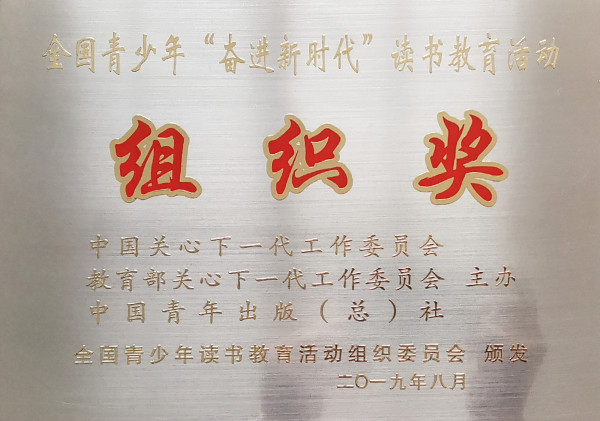 全国青少年“奋进新时代”读书教育活动
组织奖
中国关心下一代工作委员会
教育部关心下一代工作委员会 主办
中国青年出版(总)社
全国青少年读书教育活动组织委员会 颁发
二〇一九年八月